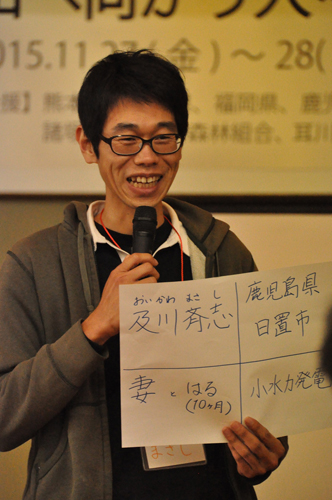 へ向かう人
015.11.27(金)～28(
援】熊本
、福岡県、鹿児
諸塚
森林組合、耳川
おいかわ まさ し
及川 斉志
鹿児島県
日置市
妻 と はる
(10ヶ月)
小水力発電
まさし